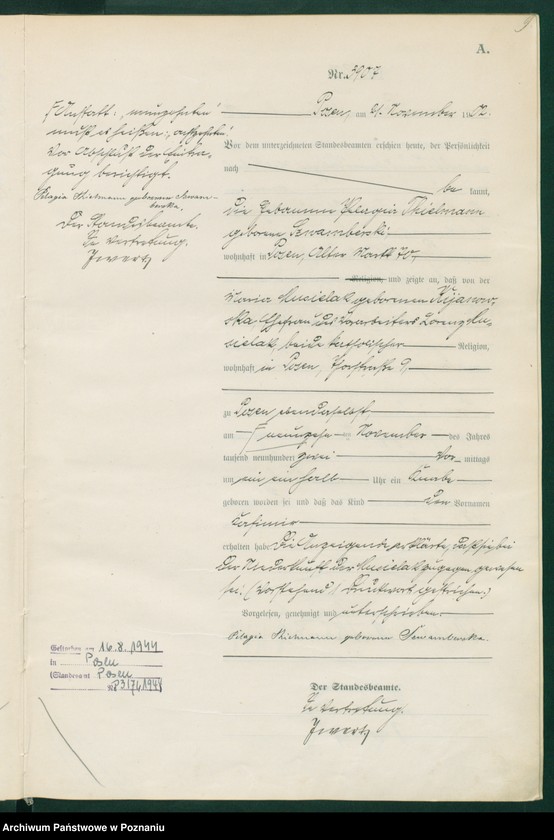 A.
Nr. 3907
Posen, am 21. November 1902.
Vor dem unterzeichneten Standesbeamten erschien heute, der Persönlichkeit
nach
be kannt,
die Hebamme Pelagia Thielmann
geborene
wohnhaft in Posen, Alter Markt 70,
Religion, und zeigte an, daß von der
Maria Musielak geborenen Kijanow-
ska Ehefrau des Vorarbeiters Lorenz Mu-
sielak, beide katholischer Religion,
wohnhaft in Posen,
zu Posen ebendaselbst,
am neunzehn ten November des Jahres
tausend neunhundert zwei Vor mittags
um ein ein halb Uhr ein Knabe
geboren worden sei und daß das Kind den Vornamen
Casimir
erhalten habe. Die Anzeigende erklärte, daß sie bei
der Niederkunft der Musielak zugegen gewesen
sei. (Vorstehend 1 Druckwort gestrichen.)
Vorgelesen, genehmigt und unterschrieben.
Pelagia geborene
Der Standesbeamte.
In Vertretung.
Anstatt: „neunzehnten“
muß es heißen: „achtzehnten“.
Vor Abschluß der Eintra-
gung berichtigt.
Pelagia geborene
Der Standesbeamte.
In Vertretung.
Gestorben am 16.8.1944
in Posen
(Standesamt Posen
Nr. 3176/1944
Archiwum Państwowe w Poznaniu